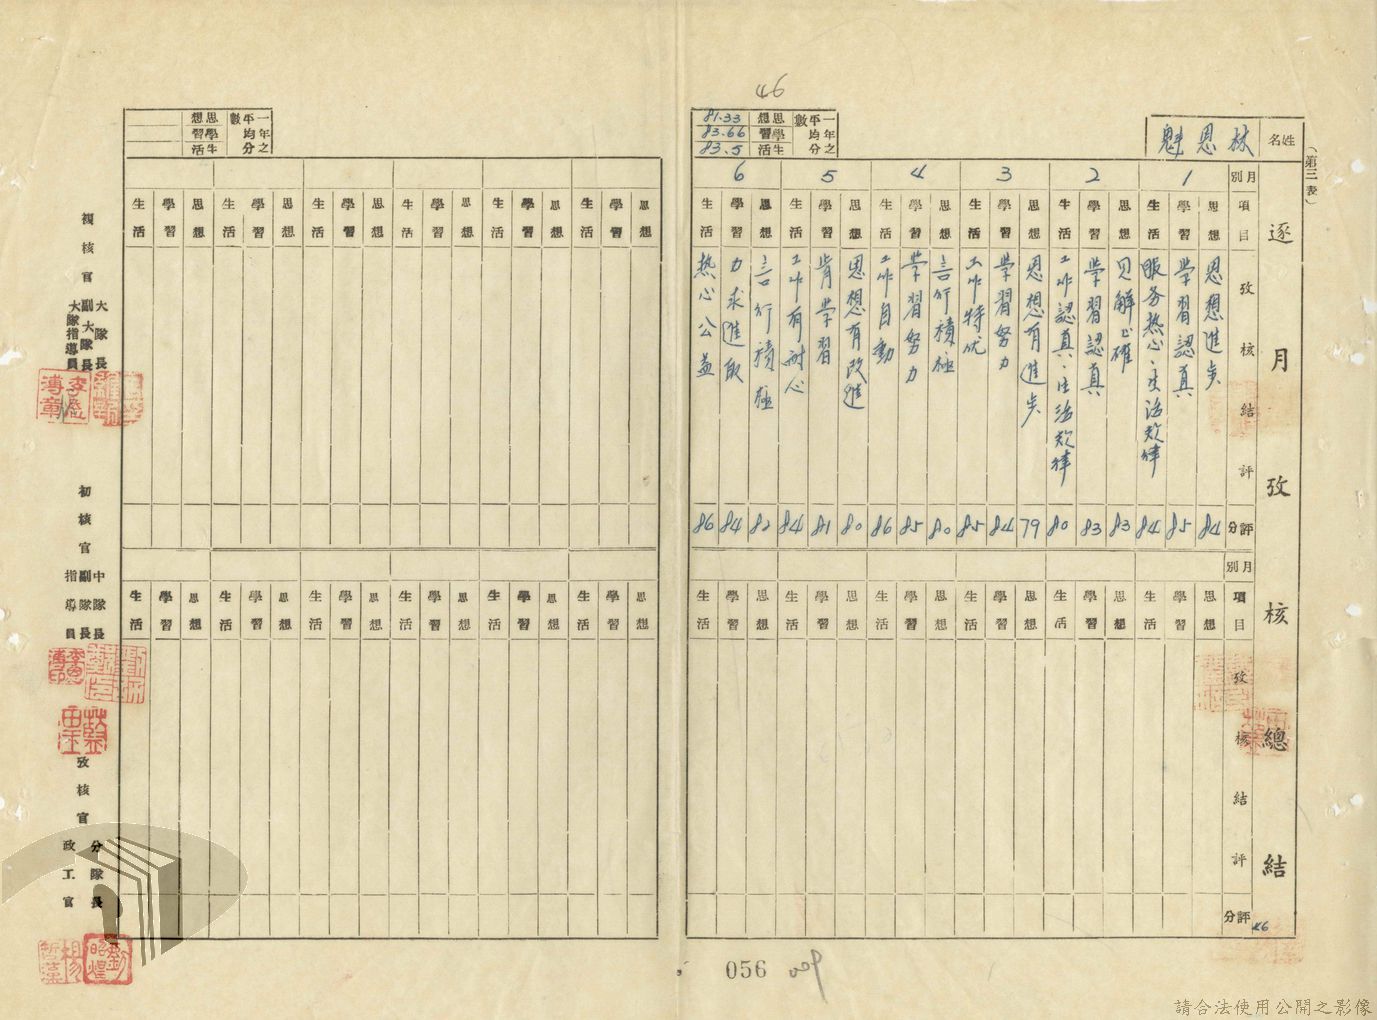 46
(第三表)
姓名 林恩魁
一年之平均分數
思想 81.33
學習 83.66
生活 83.5
逐月攷核總結
月別 1 2 3 4 5 6
項目 思想 學習 生活 思想 學習 生活 思想 學習 生活 思想 學習 生活 思想 學習 生活 思想 學習 生活
攷核結評
思想進步
學習認真
服务热心、生活规律
見解正確
學習認真
工作認真、生活规律
思想有進步
學習努力
工作特优
言行積極
學習努力
工作自動
思想有改進
肯學習
工作有耐心
言行積極
力求進取
热心公益
評分 84 85 84 83 83 80 79 84 85 80 85 86 80 81 84 82 84 86
月別
項目 思想 學習 生活 思想 學習 生活 思想 學習 生活 思想 學習 生活 思想 學習 生活 思想 學習 生活
攷核結評
評分
46
一年之平均分數
思想
學習
生活
思想 學習 生活 思想 學習 生活 思想 學習 生活 思想 學習 生活 思想 學習 生活 思想 學習 生活
思想 學習 生活 思想 學習 生活 思想 學習 生活 思想 學習 生活 思想 學習 生活 思想 學習 生活
複核官
大隊長
副大隊長
大隊指導員
初核官
中隊長
副隊長
指導員
攷核官
分隊長
政工官
056
請合法使用公開之影像